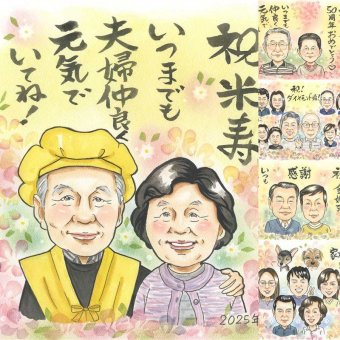 祝米寿
いつまでも
夫婦仲良く
元気で
いてね!
2025年
50周年おめでとう
いつまでも
仲良く
元気で
祝!
ダイヤモンド婚!
感謝